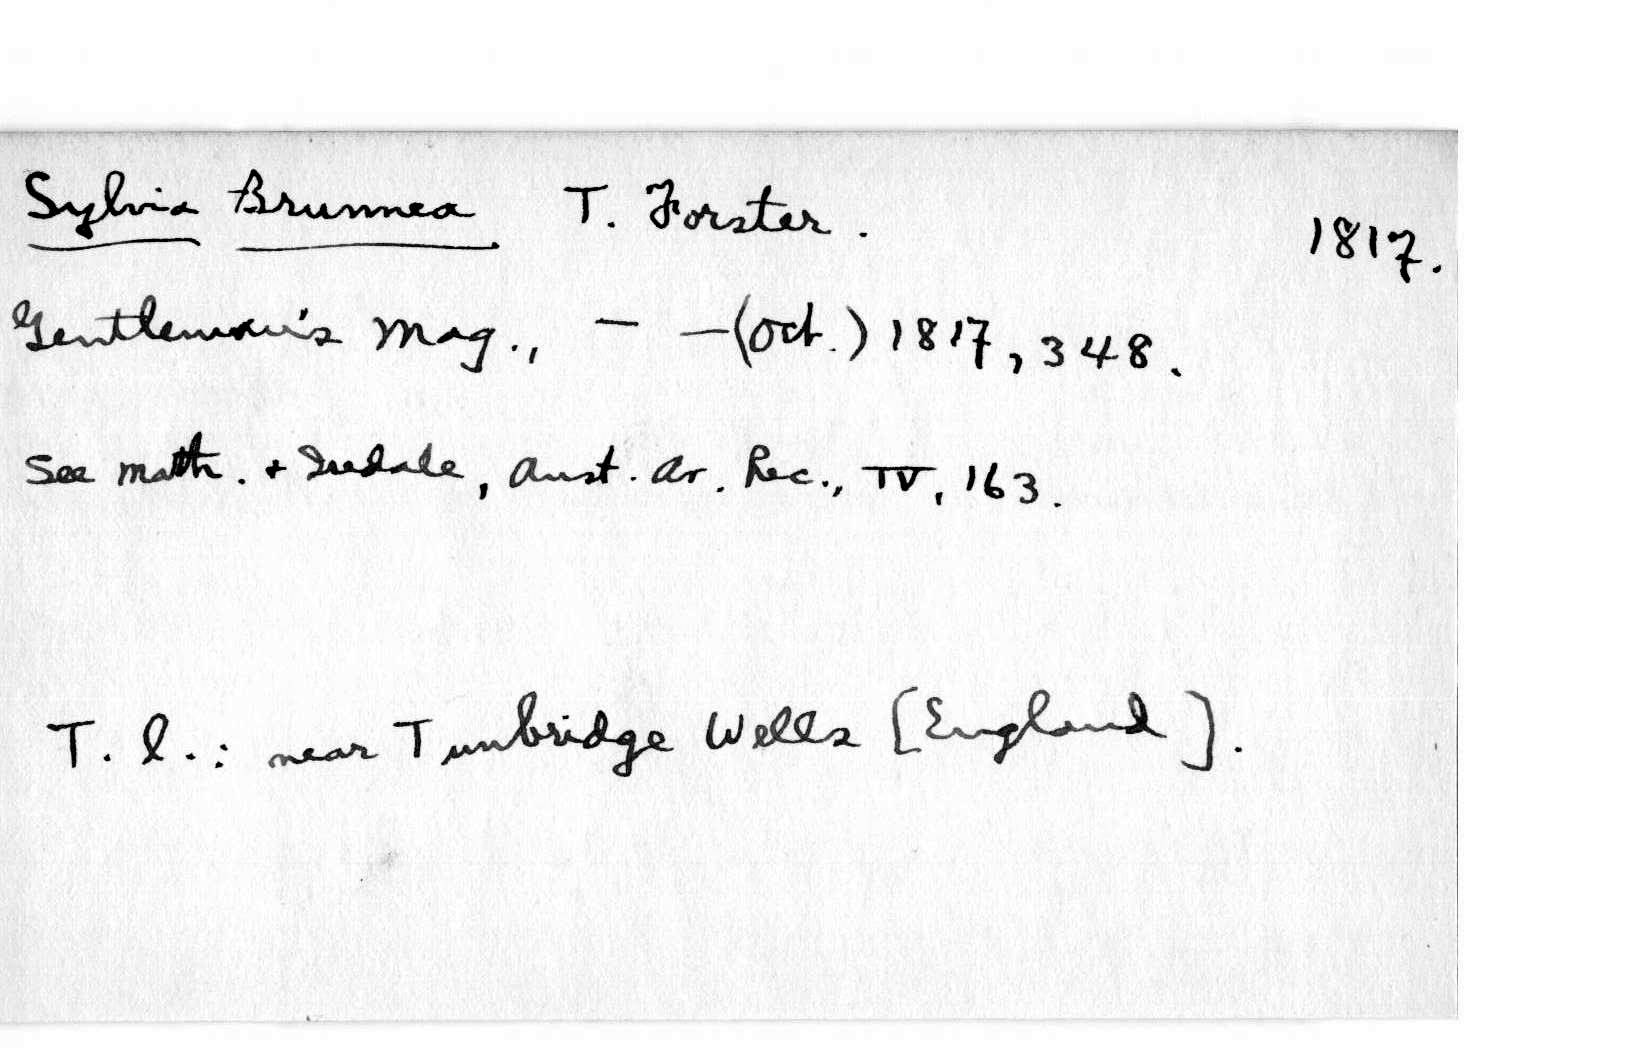 Sylvia Brunnea T. Forster. 1817.
Gentleman's Mag., — —(Oct.) 1817, 348.
See Math. + Iredale, Aust. Av. Rec., IV, 163.
T. l.: near Tunbridge Wells [England].